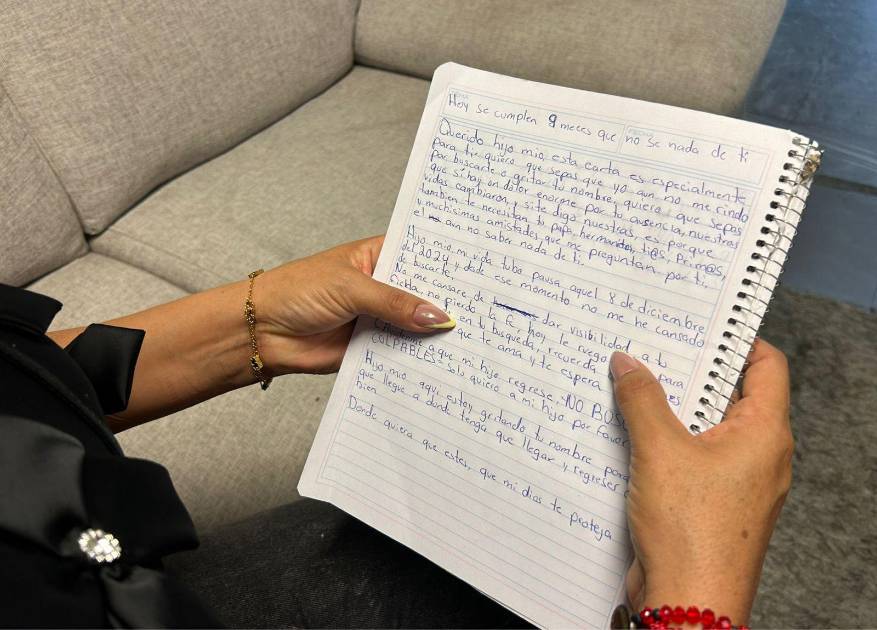 Hoy se cumplen 9 meces que no se nada de ti
Querido hijo mio, esta carta es especialmente
para ti quiero que sepas que yo aun no me rindo
por buscarte o gritar tu nombre, quiero que sepas
que si hay un dolor enorme por tu ausencia, nuestras
vidas cambiaron, y si te digo nuestras, es porque
tambien te necesitan tu papa, hermanitos, ti@s, Prim@s,
y muchisimas amistades que me preguntan por ti,
el aun no saber nada de ti.
Hijo mio mi vida tubo pausa aquel 8 de diciembre
del 2024 y desde ese momento no me he cansado
de buscarte.
No me cansare de dar visibilidad a tu
ficha, no pierdo la fe, hoy le ruego a para
en tu busqueda, recuerda es
que te ama y te espera
a que mi hijo regrese, NO BUS
CULPABLES solo quiero a mi hijo por favor
Hijo mio aqui estoy gritando tu nombre para
que llegue a donde tenga que llegar y regreses
bien
Donde quiera que estes, que mi dios te proteja